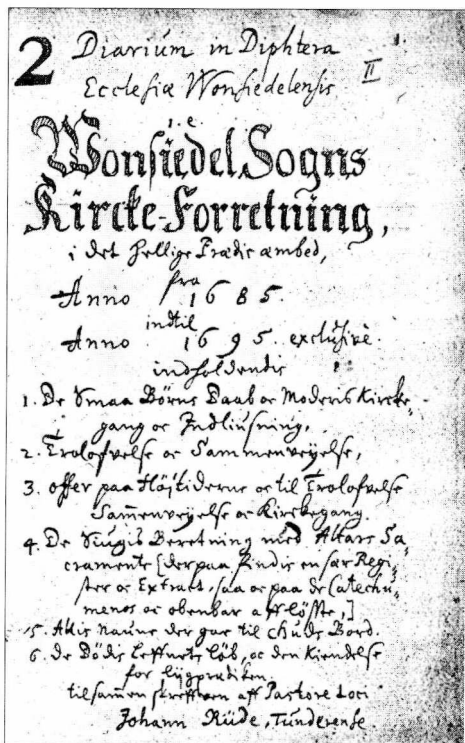 2 Diarium in Diphtera
Ecclesiæ Wonsiedelensis
II
i.e.
Wonsiedel Sogns
Kircke-Forretning,
i det hellige Prædicambed,
fra
Anno 1685.
indtil
Anno 1695. exclusivè.
indholdendis
1. De Smaa Börns Daab oc Moderis Kircke-
gang oc Indliusning,
2. Trolofvelse oc Sammenveyelse,
3. offer paa Höjtiderne oc til Trolofvelse
Sam̅envejelse oc Kirckegang.
4. De Siugis Beretning med Altars Sa-
cramente [der paa findis en sær Regi-
ster oc Extract, saa oc paa de Catechu-
menos oc obenbar afflöste,]
5. Allis naune der gar til Guds Bord.
6. De Dödis Leffnets löb, oc den Kiendelse
for liigprædiken,
tilsam̅en skreffven aff Pastore Loci
Johann Rüde, Tunderense